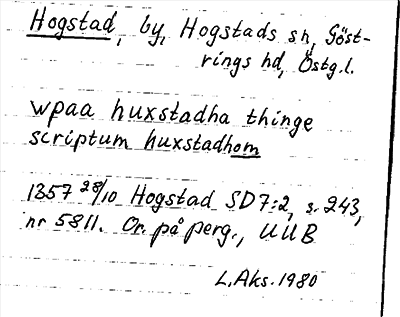 Hogstad, by, Hogstads sn, Göst-
rings hd, Östg.l.
wpaa huxstadha thinge
scriptum huxstadhom
1357 28/10 Hogstad SD7:2, s. 243,
nr 5811. Or. på perg., UUB
L.Aks. 1980